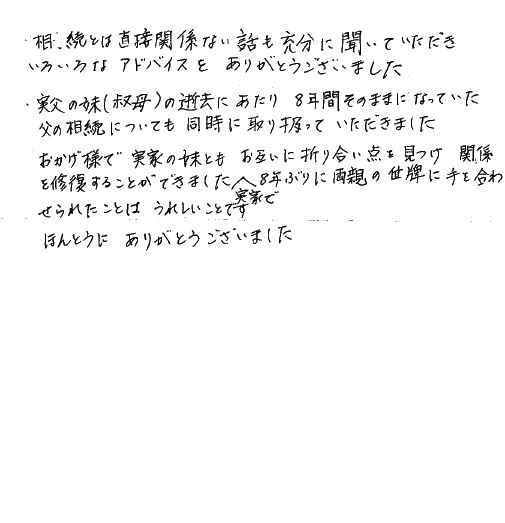 ・相続とは直接関係ない話も充分に聞いていただき
いろいろなアドバイスを ありがとうございました
・実父の妹(叔母)の逝去にあたり 8年間そのままになっていた
父の相続についても同時に取り扱って いただきました
おかげ様で実家の妹とも お互いに折り合い点を見つけ 関係
を修復することができました 8年ぶりに実家で両親の位牌に手を合わ
せられたことは うれしいことです
ほんとうに ありがとうございました